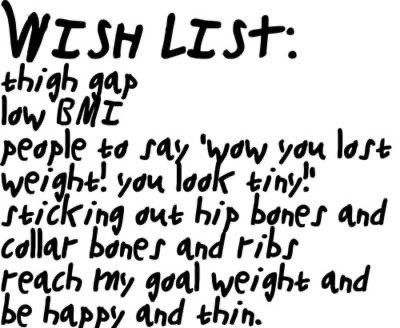 WISH LIST:
thigh gap
low BMI
people to say 'wow you lost
weight! you look tiny!'
sticking out hip bones and
collar bones and ribs
reach my goal weight and
be happy and thin.